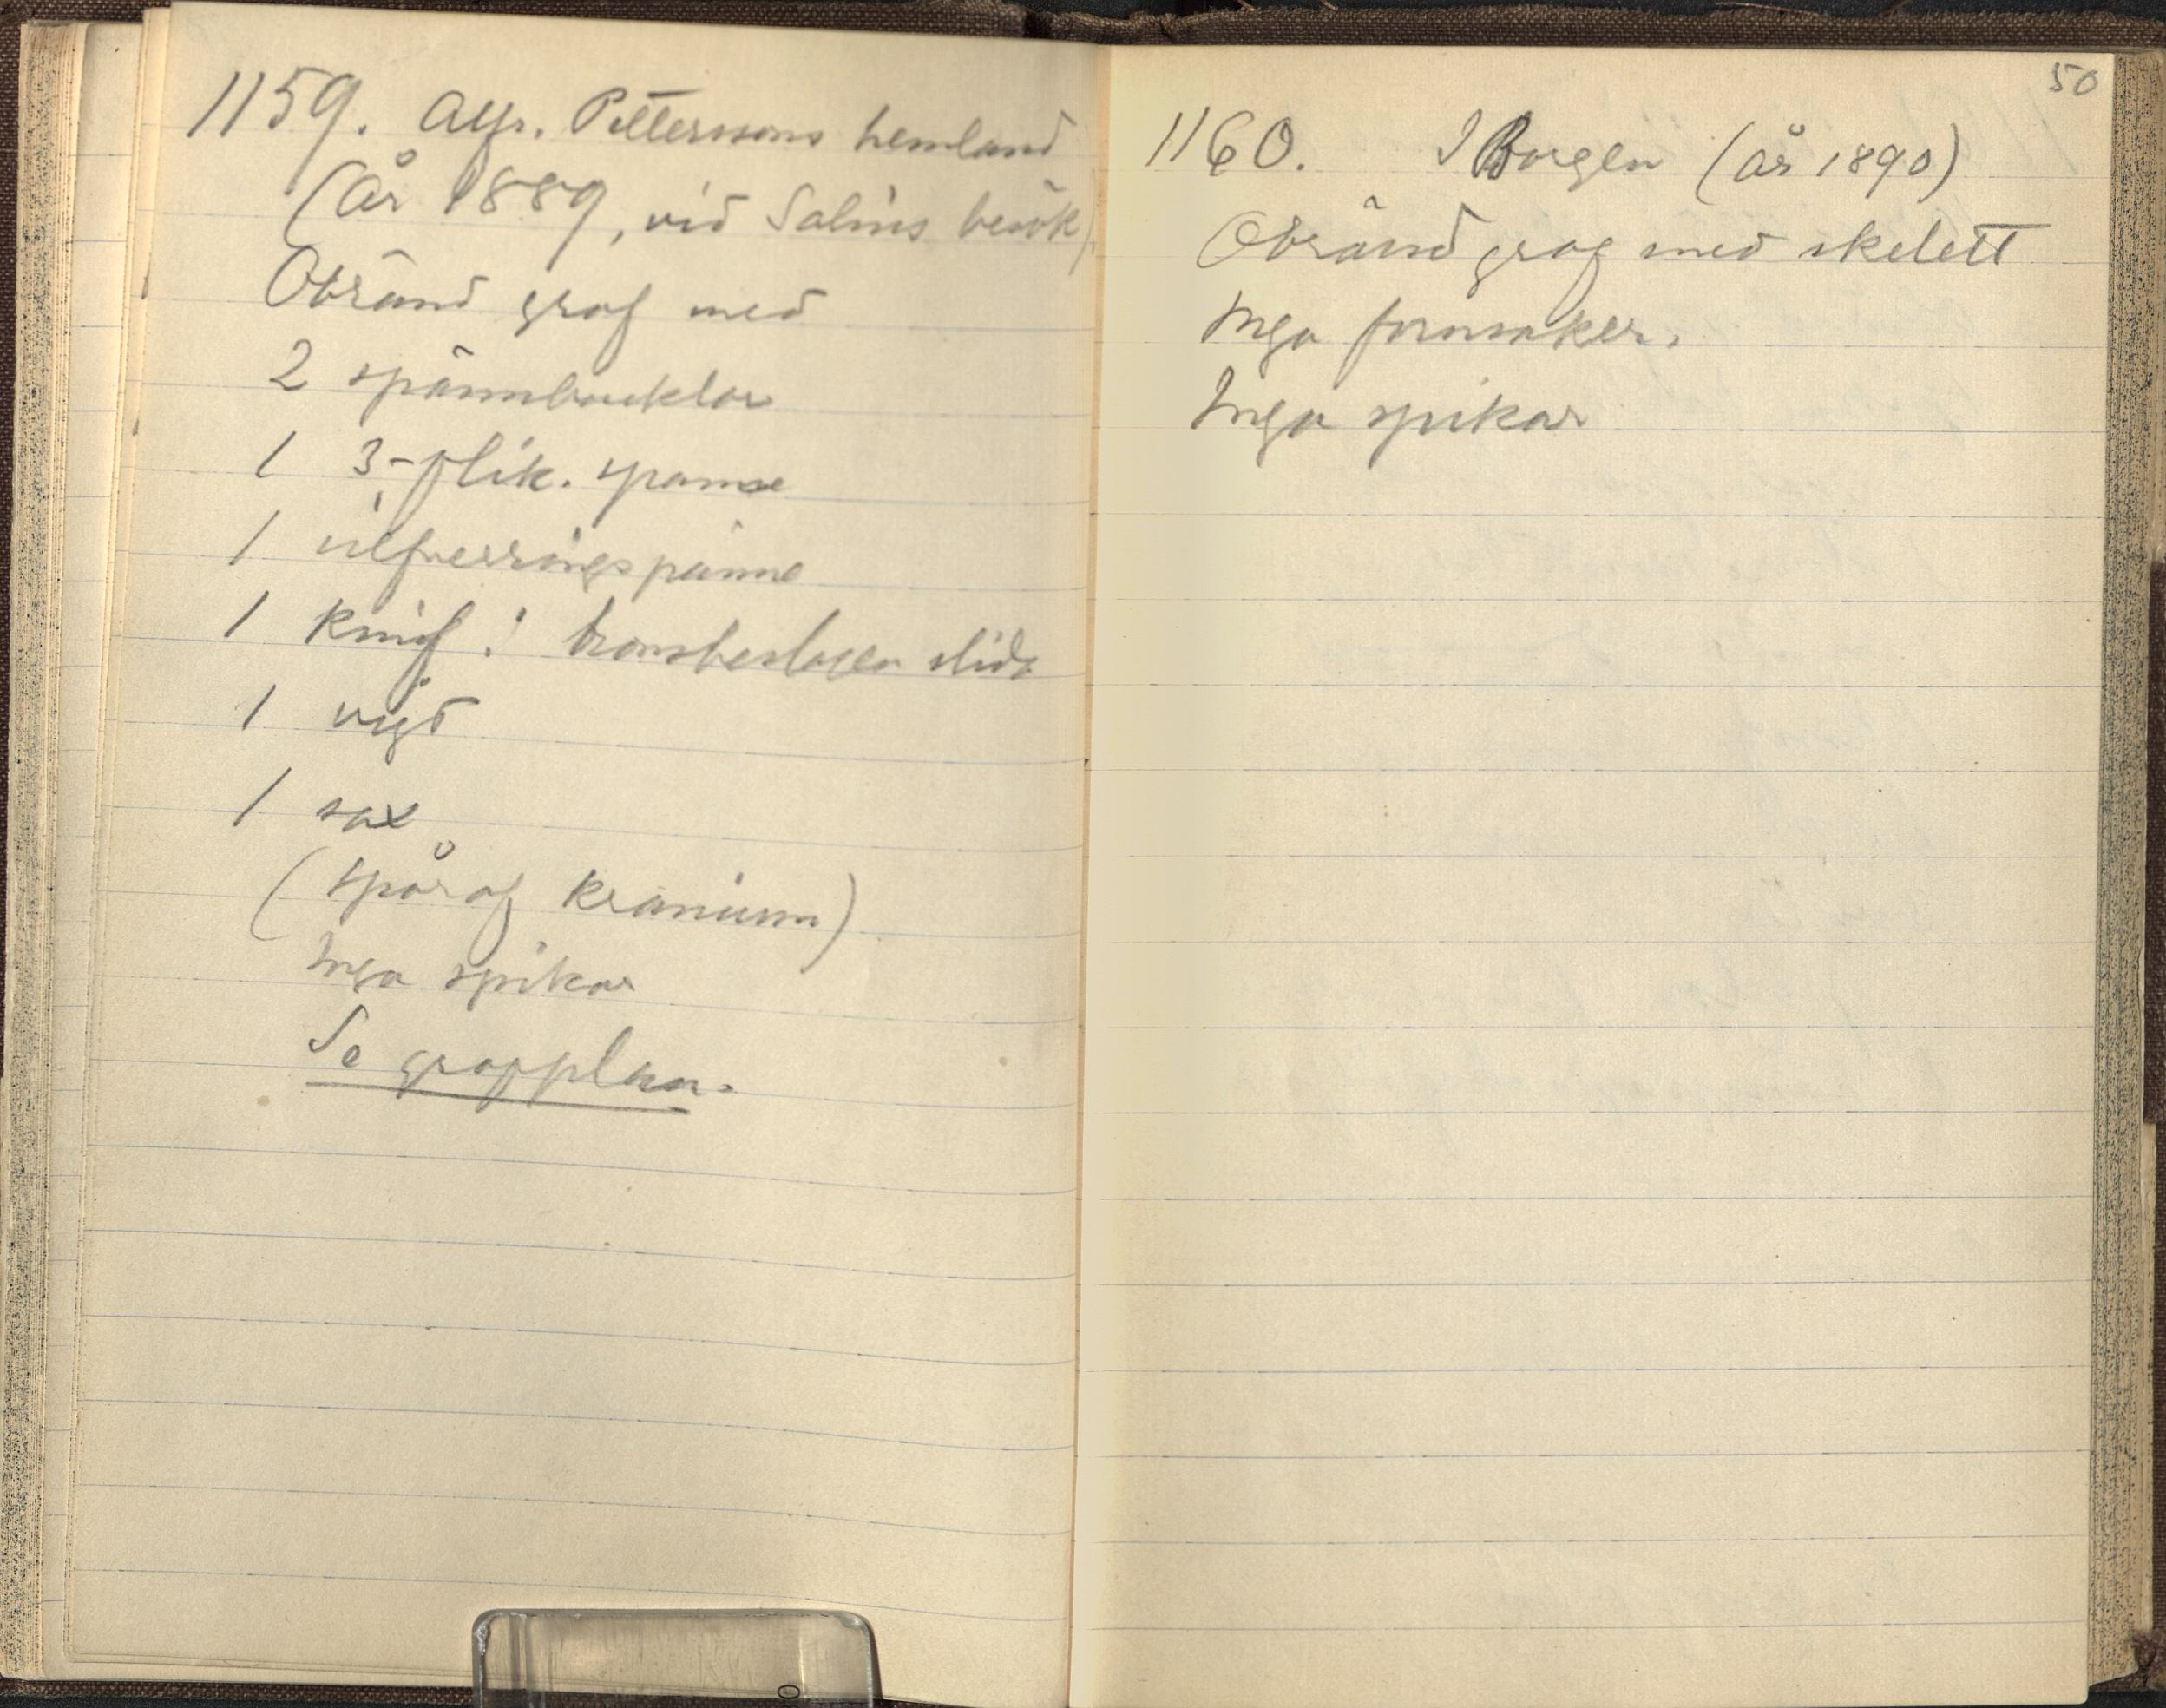 1159. Alfr. Petterssons hemland
(år 1889, vid Salins besök).
Obränd graf med
2 spännbucklor
1 3-flik. spänne
1 silfverringspänne
1 knif i bronsbeslagen slida
1 vigt
1 sax
(spår af kranium)
Inga spikar
Se grafplan.
50
1160. I Borgen (år 1890)
Obränd graf med skelett
Inga fornsaker.
Inga spikar